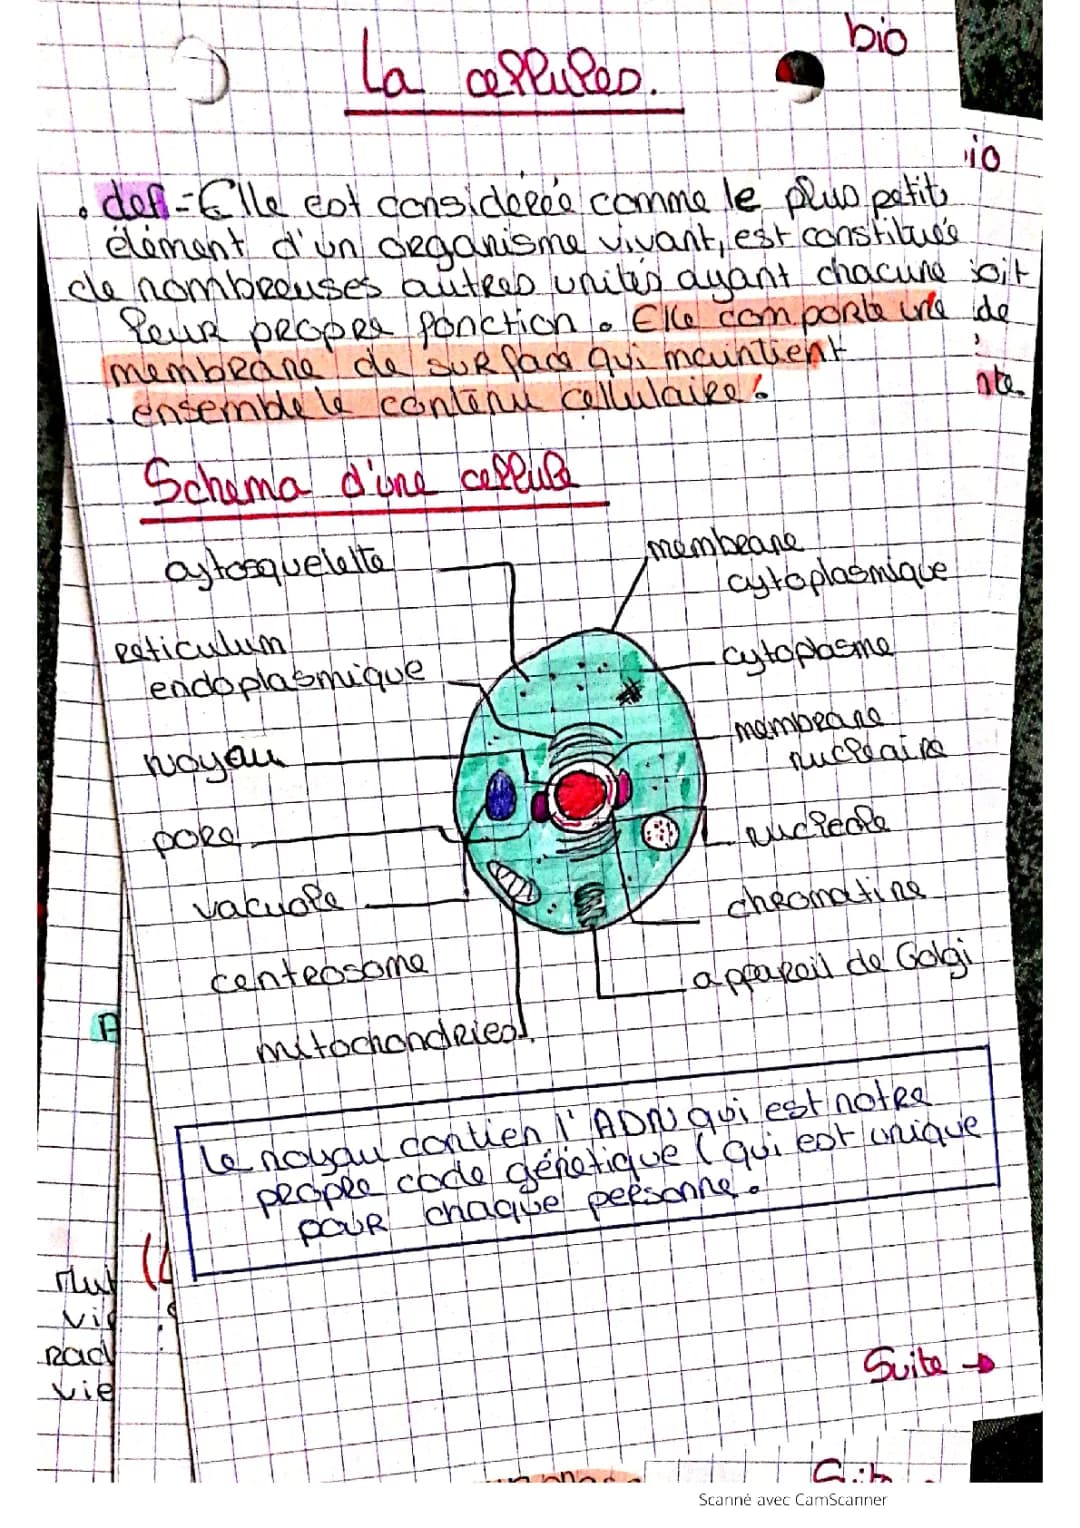 bio
La cellules.
io
• def = Elle est considérée comme le plus petit
élément d'un organisme vivant, est constituée
de nombreuses autres unités ayant chacune
soit
leur propre fonction. Elle comporte une
de
membrane de surface qui maintient
ensemble le contenu cellulaire.
nte.
Schema d'une cellule
cytosquelette
membrane
cytoplasmique
reticulum
endoplasmique
cytoplasme
noyau
membrane
nucléaire
pore
nucléole
vacuole
chromatine
centrosome
appareil de Golgi
mitochondries.
A
Le noyau contien l'ADN qui est notre
propre code génétique (qui est unique
pour chaque personne.
Mut
vie
Rad
vie
Suite →
Scanné avec CamScanner